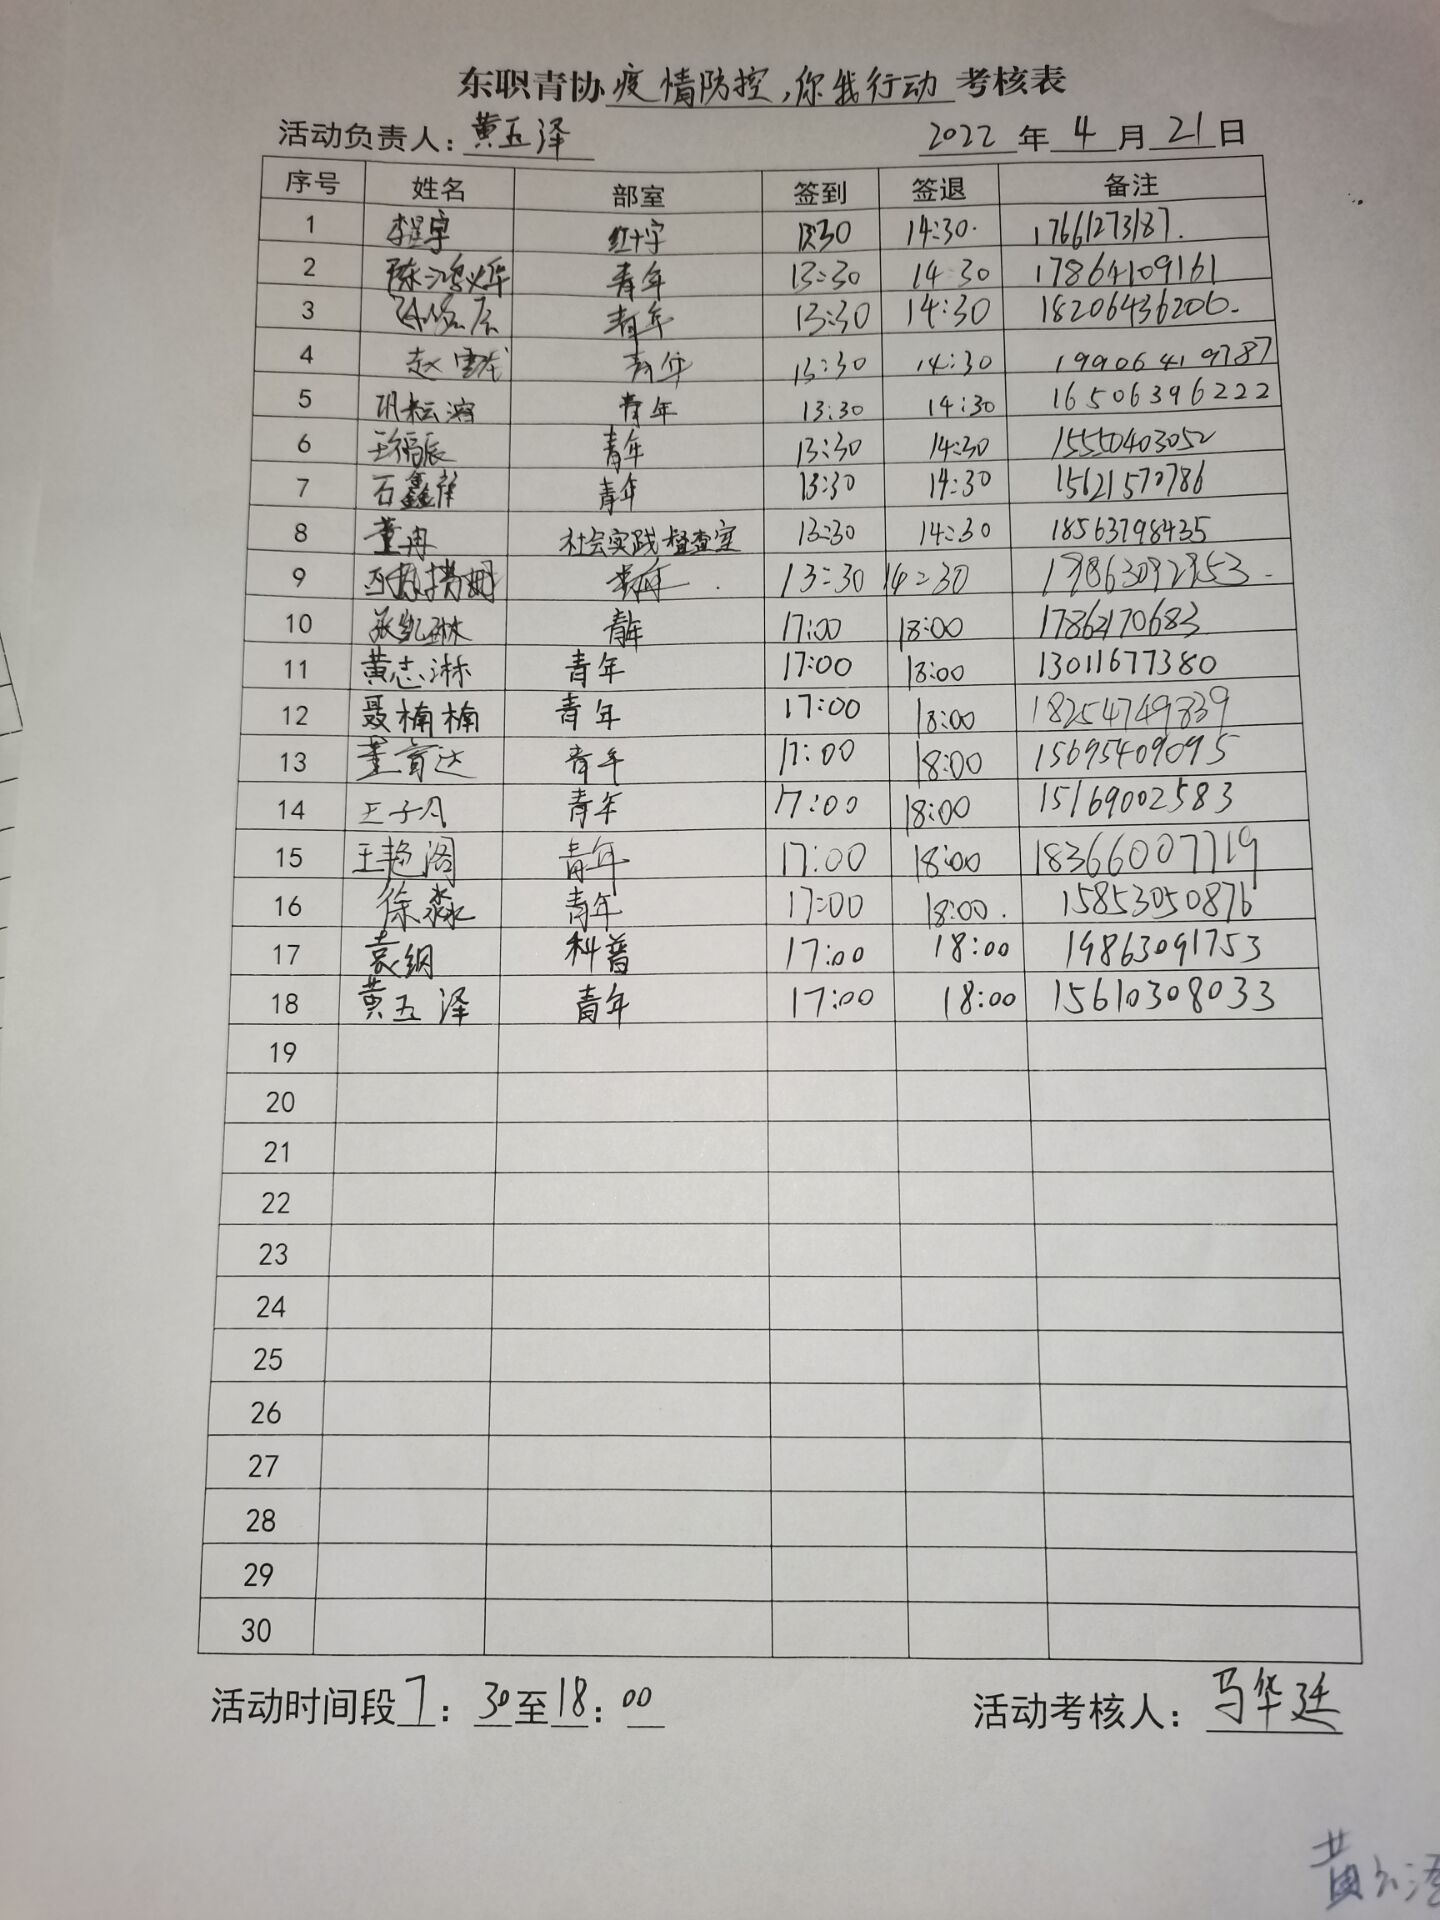 东职青协疫情防控,你我行动考核表
活动负责人:黄五泽 2022年4月21日
序号 姓名 部室 签到 签退 备注
1 李星宇 红十字 13:30 14:30. 17661273187.
2 陈鸿烨 青年 13:30 14:30 17864109161
3 青年 13:30 14:30 18206436206.
4 赵雪龙 青年 13:30 14:30 19906419787
5 巩耘溶 青年 13:30 14:30 16506396222
6 王福辰 青年 13:30 14:30 15550403052
7 石鑫祥 青年 13:30 14:30 15621570786
8 董冉 社会实践督查室 13:30 14:30 18563798435
9 青年. 13:30 14:30
10 张凯琳 青年 17:00 18:00 17862170683
11 黄志淋 青年 17:00 18:00 13011677380
12 聂楠楠 青年 17:00 18:00 18254749839
13 董育达 青年 17:00 18:00 15695409095
14 王子凡 青年 17:00 18:00 15169002583
15 王艳阁 青年 17:00 18:00 18366007719
16 徐淼 青年 17:00 18:00. 15853050876
17 袁纲 科普 17:00 18:00 19863091753
18 黄五泽 青年 17:00 18:00 15610308033
19
20
21
22
23
24
25
26
27
28
29
30
活动时间段7:30至18:00 活动考核人:马华廷
黄五泽